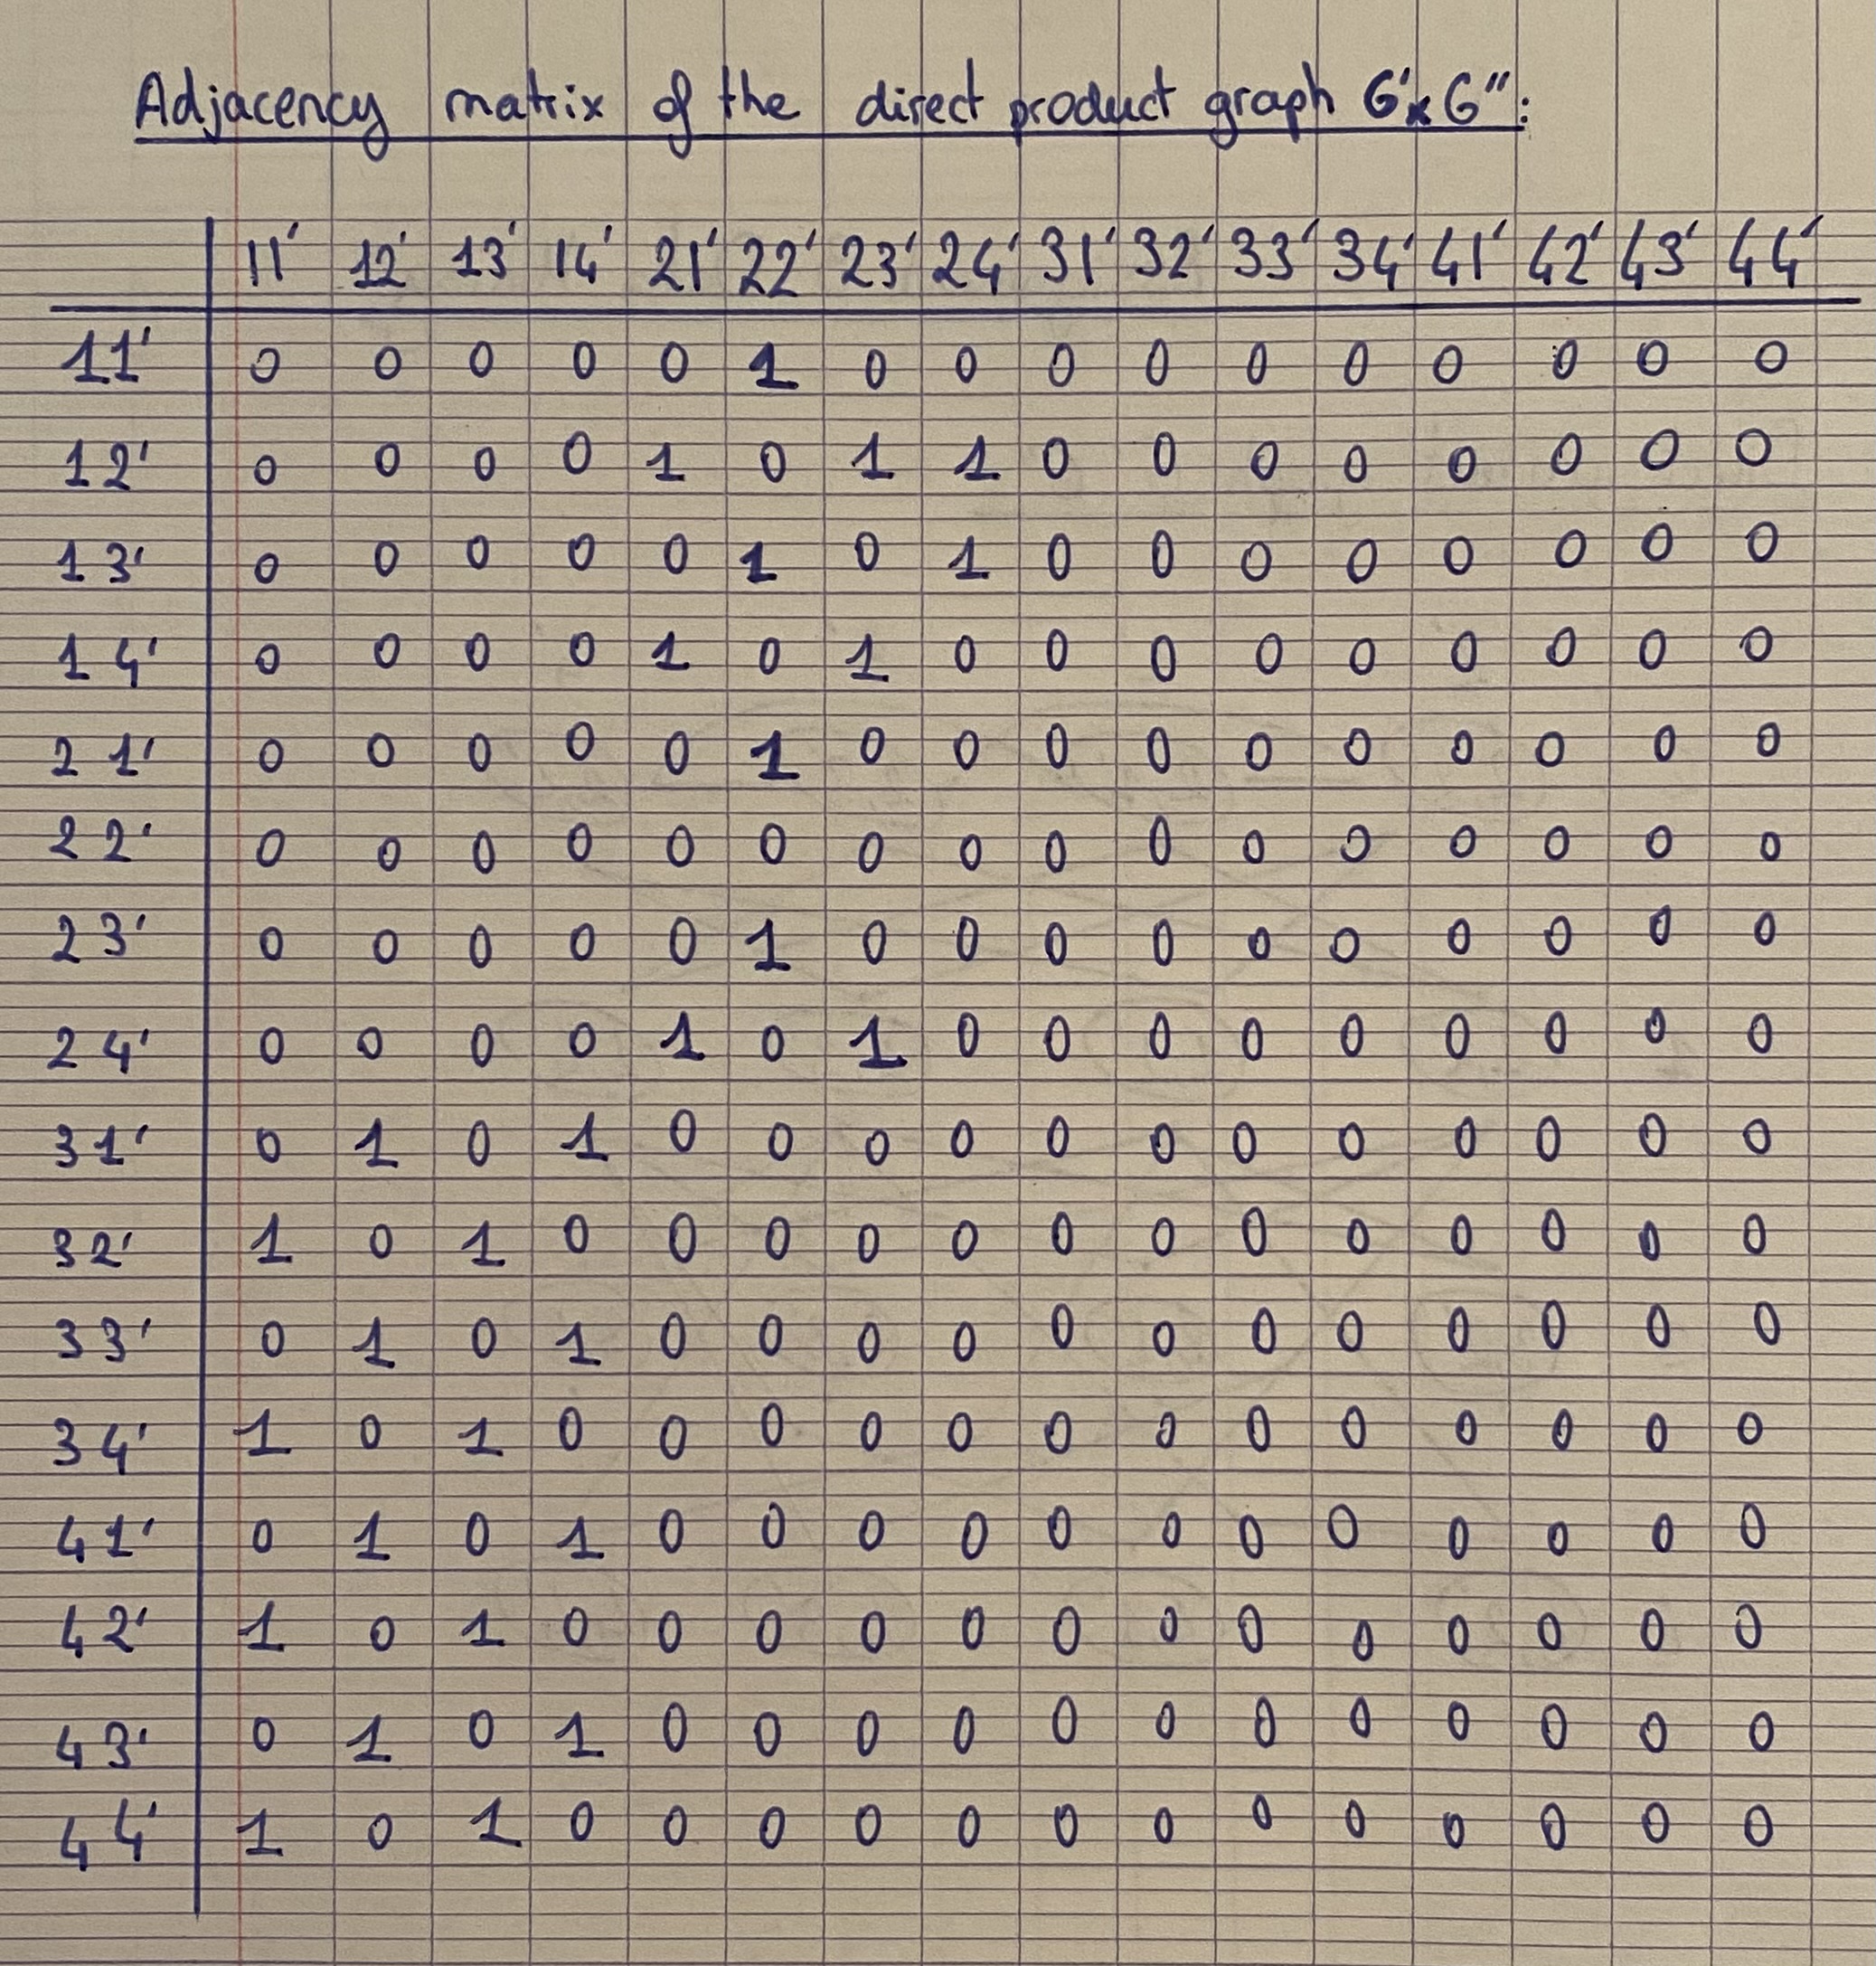 Adjacency matrix of the direct product graph G'×G'':
11' 12' 13' 14' 21' 22' 23' 24' 31' 32' 33' 34' 41' 42' 43' 44'
11' 0 0 0 0 0 1 0 0 0 0 0 0 0 0 0 0
12' 0 0 0 0 1 0 1 1 0 0 0 0 0 0 0 0
13' 0 0 0 0 0 1 0 1 0 0 0 0 0 0 0 0
14' 0 0 0 0 1 0 1 0 0 0 0 0 0 0 0 0
21' 0 0 0 0 0 1 0 0 0 0 0 0 0 0 0 0
22' 0 0 0 0 0 0 0 0 0 0 0 0 0 0 0 0
23' 0 0 0 0 0 1 0 0 0 0 0 0 0 0 0 0
24' 0 0 0 0 1 0 1 0 0 0 0 0 0 0 0 0
31' 0 1 0 1 0 0 0 0 0 0 0 0 0 0 0 0
32' 1 0 1 0 0 0 0 0 0 0 0 0 0 0 0 0
33' 0 1 0 1 0 0 0 0 0 0 0 0 0 0 0 0
34' 1 0 1 0 0 0 0 0 0 0 0 0 0 0 0 0
41' 0 1 0 1 0 0 0 0 0 0 0 0 0 0 0 0
42' 1 0 1 0 0 0 0 0 0 0 0 0 0 0 0 0
43' 0 1 0 1 0 0 0 0 0 0 0 0 0 0 0 0
44' 1 0 1 0 0 0 0 0 0 0 0 0 0 0 0 0